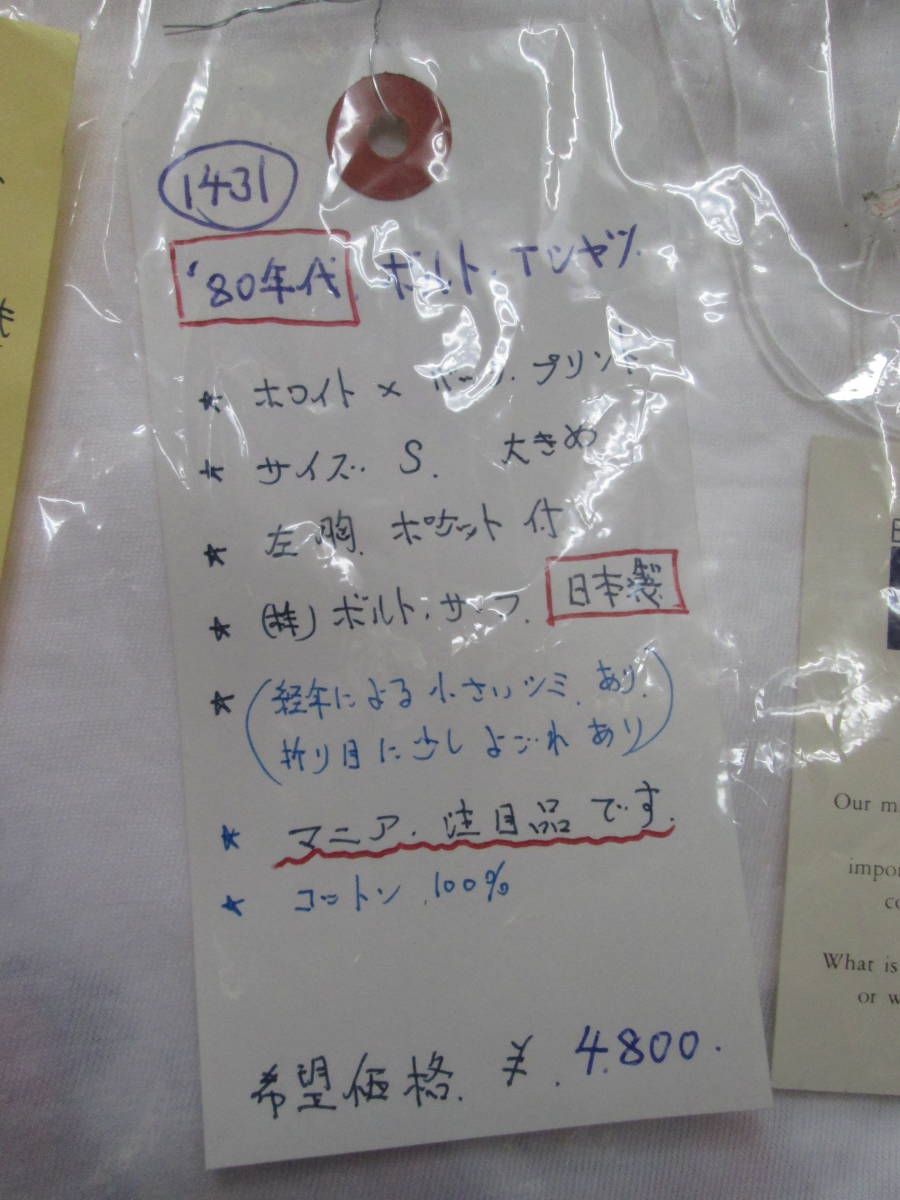 1431
'80年代. ボルト. Tシャツ.
★ ホワイト × プリント
★ サイズ. S. 大きめ
★ 左胸. ポケット付
★ (株)ボルト.サーフ. 日本製
★ (経年による小さいシミ.あり.
折り目に少しよごれあり)
★ マニア.注目品です.
★ コットン.100%
希望価格. ¥.4.800.
Our m
impor
co
What is
or w